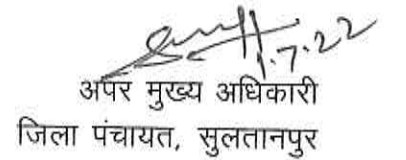 1.7.22
अपर मुख्य अधिकारी
जिला पंचायत, सुलतानपुर